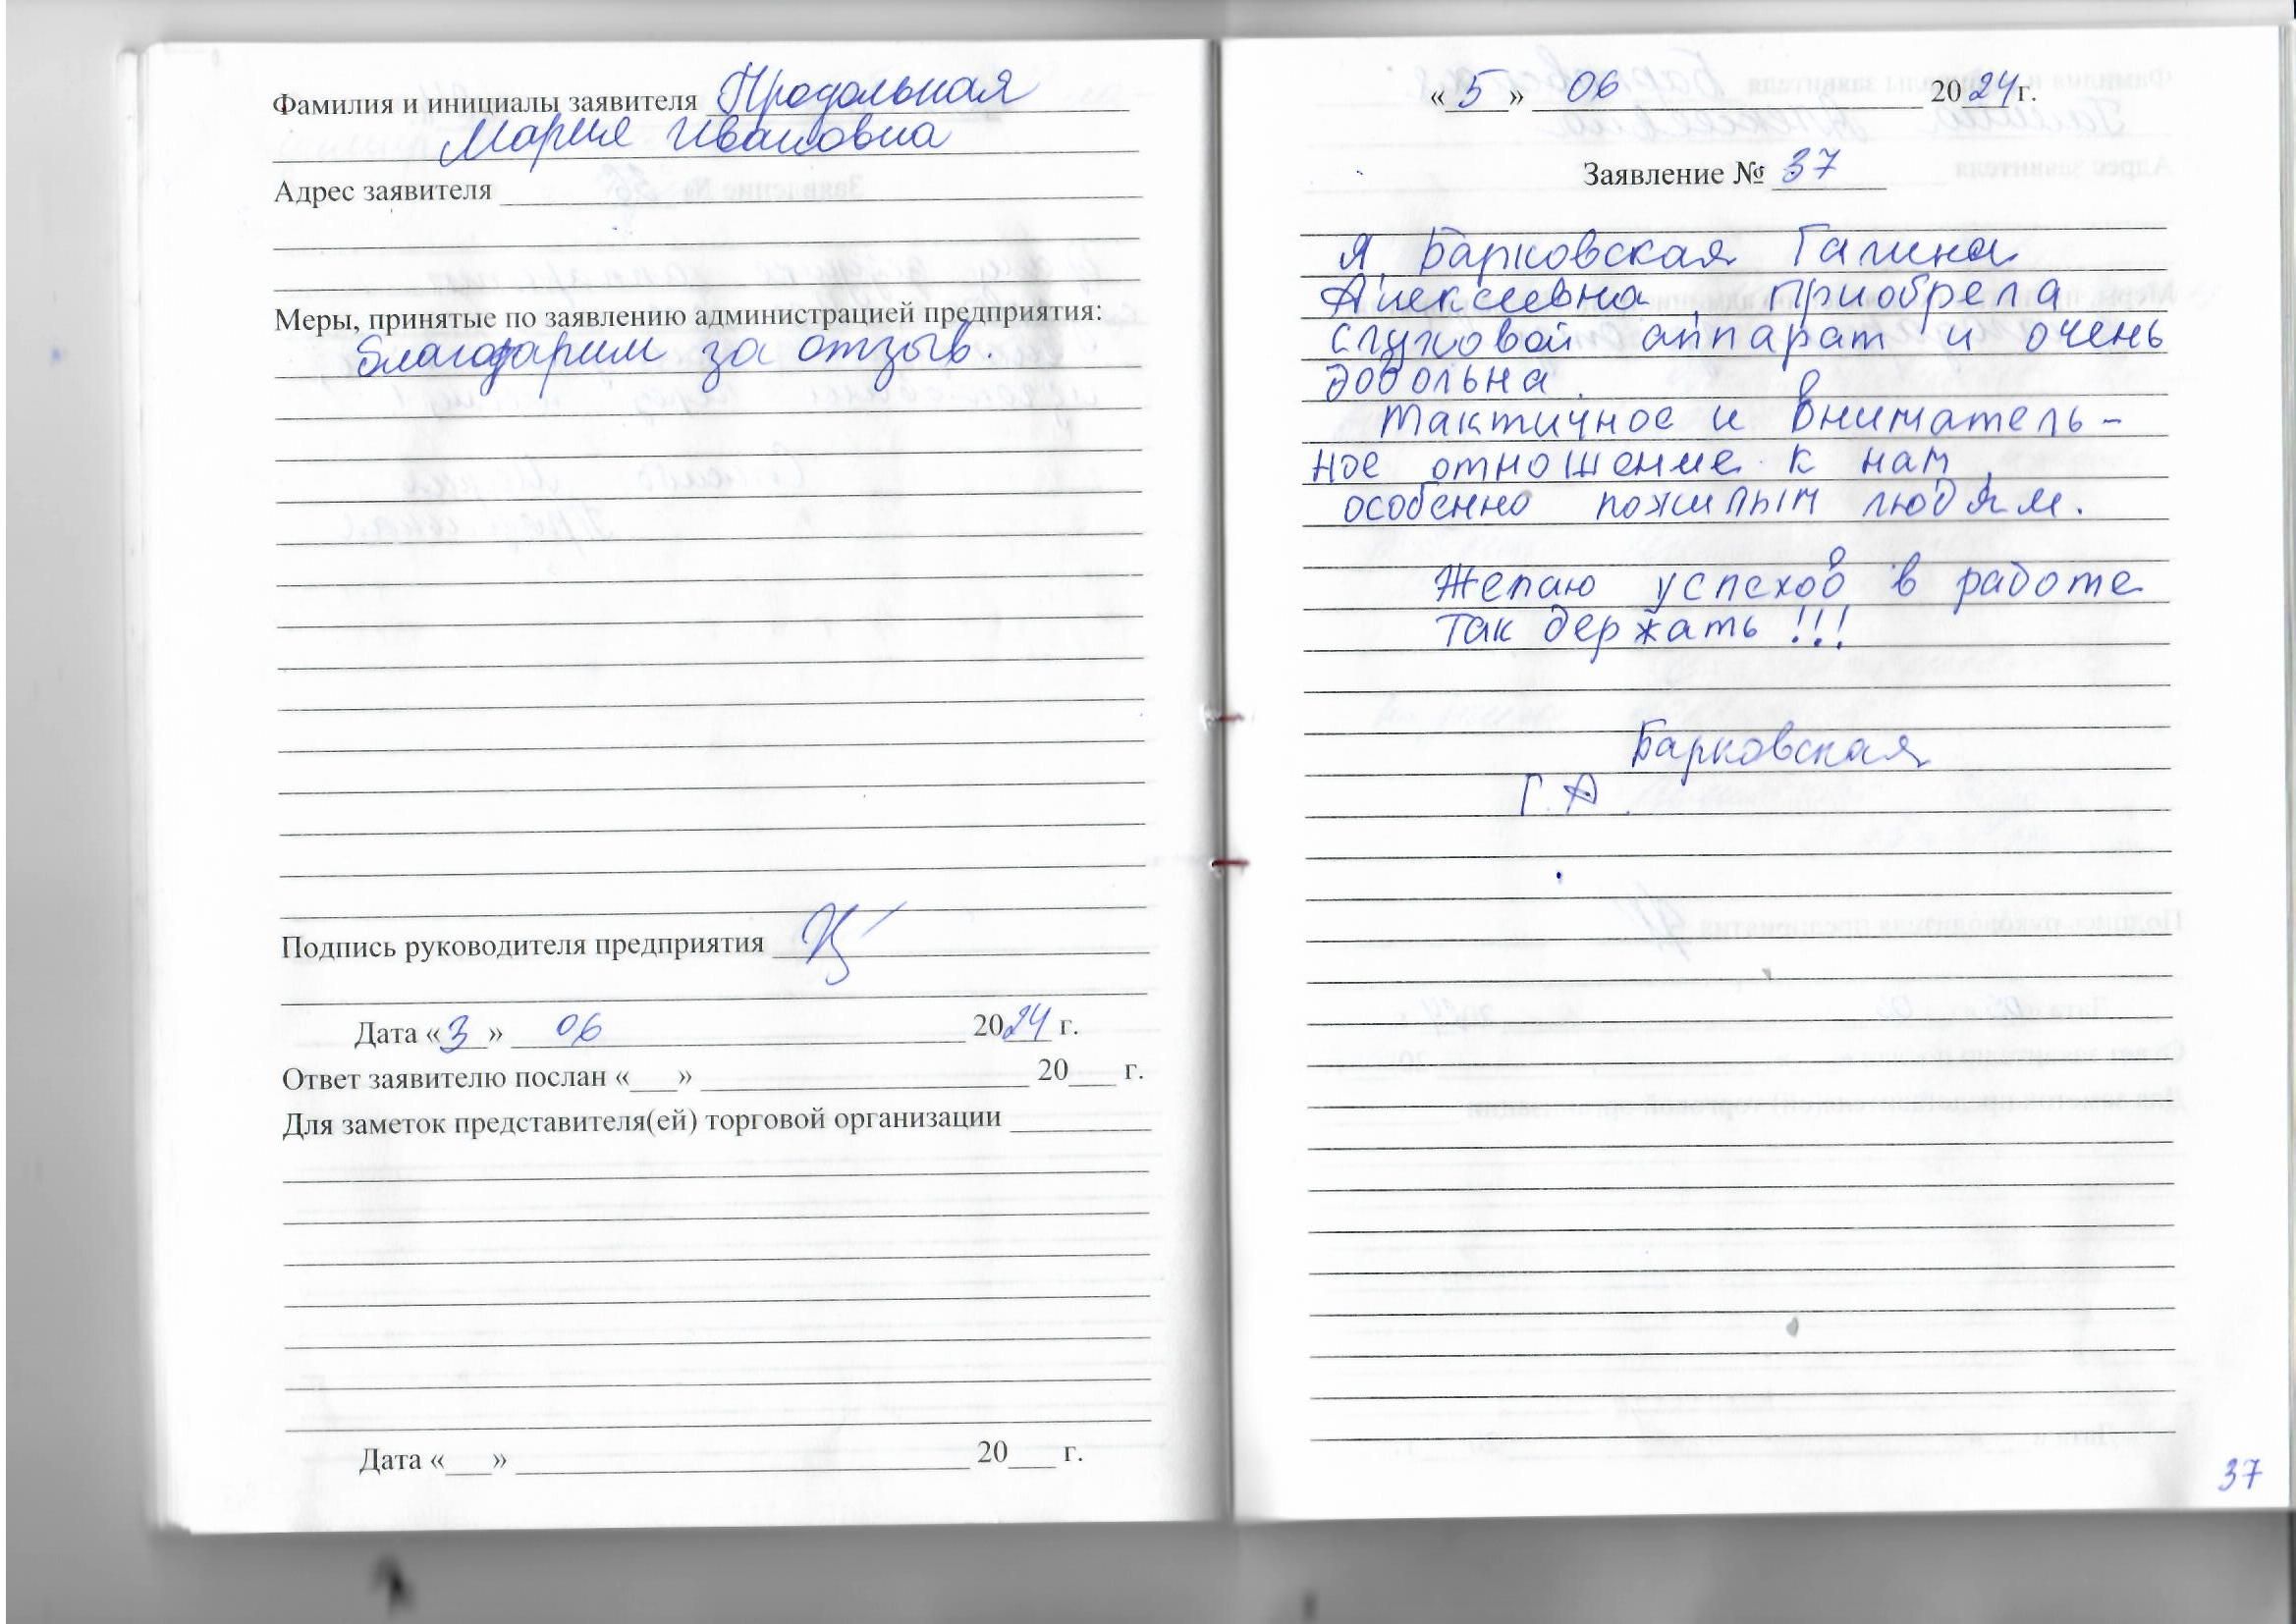 Фамилия и инициалы заявителя Продольная
Мария Ивановна
Адрес заявителя
Меры, принятые по заявлению администрацией предприятия:
Благодарим за отзыв.
Подпись руководителя предприятия
Дата «3» 06 2024 г.
Ответ заявителю послан «___» 20___ г.
Для заметок представителя(ей) торговой организации
Дата «___» 20___ г.
«5» 06 2024 г.
Заявление № 37
Я, Барковская Галина
Алексеевна, приобрела
слуховой аппарат и очень
довольна.
Тактичное и вниматель-
ное отношение к нам,
особенно пожилым людям.
Желаю успехов в работе
Так держать!!!
Барковская
Г.А.
37